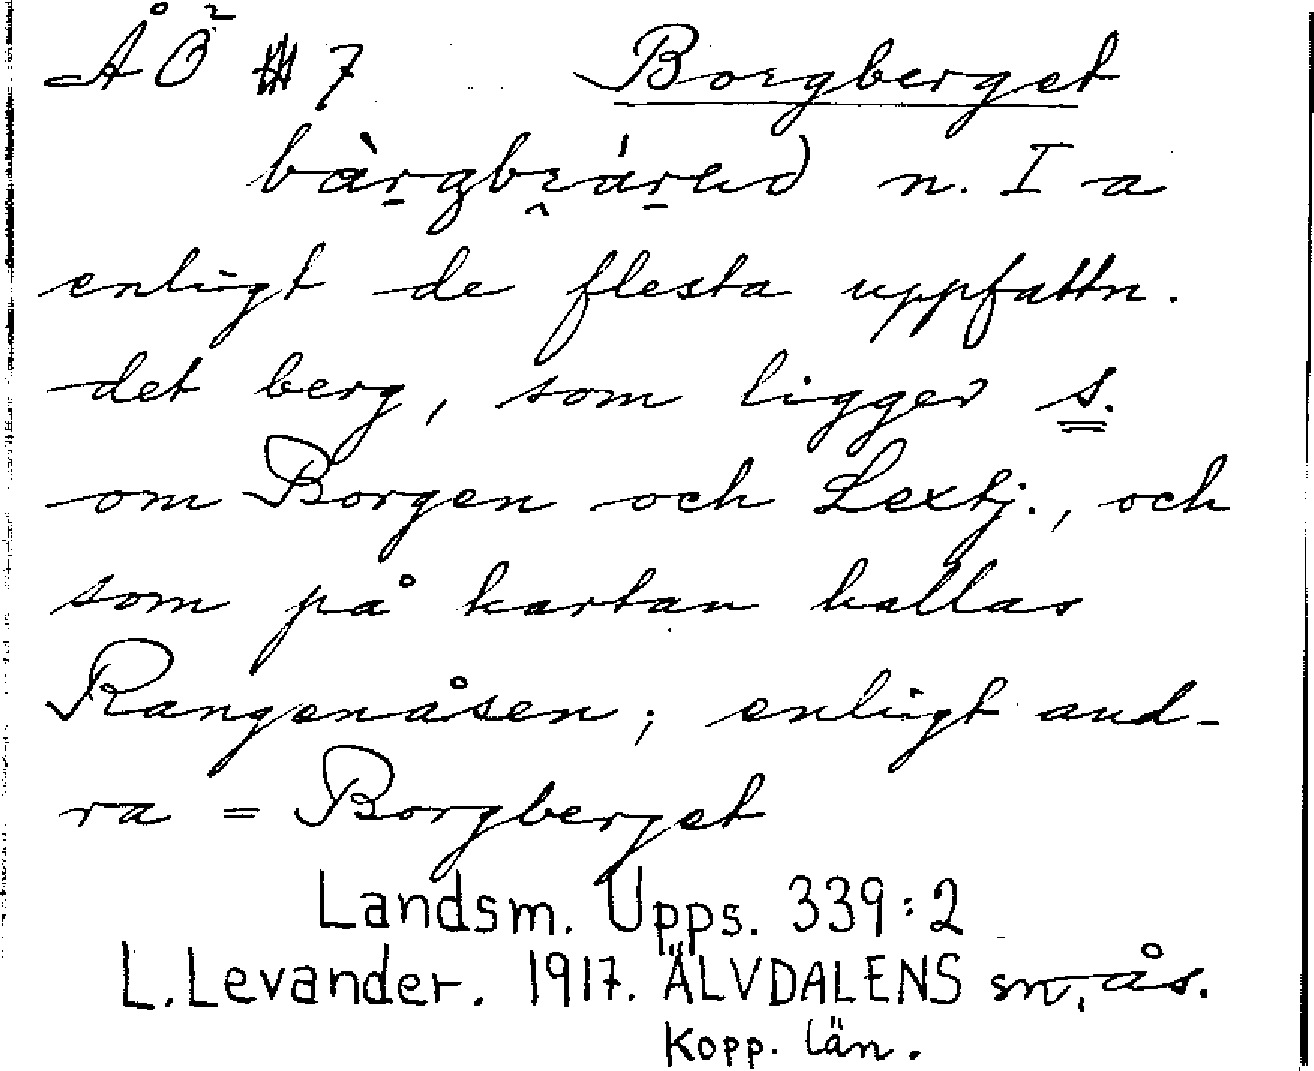 ÅÖ² 7 Borgberget
bàrgbrárɛð n. I a
enligt de flesta uppfattn.
det berg, som ligger s.
om Borgen och Lextj., och
som på kartan kallas
Rangenåsen; enligt and-
ra = Borgberget
Landsm. Upps. 339:2
L. Levander. 1917. ÄLVDALENS sn, ås.
Kopp. län.